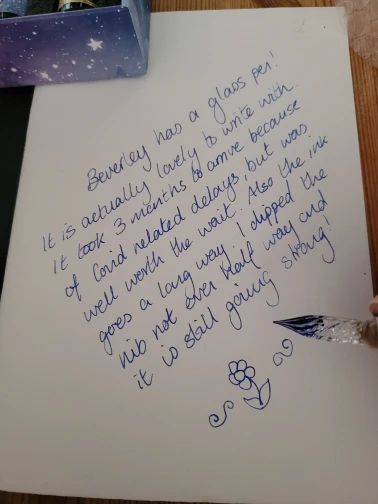 Beverley has a glass pen!
It is actually lovely to write with.
It took 3 months to arrive because
of Covid related delays, but was
well worth the wait. Also the ink
goes a long way. I dipped the
nib not even half way and
it is still going strong!